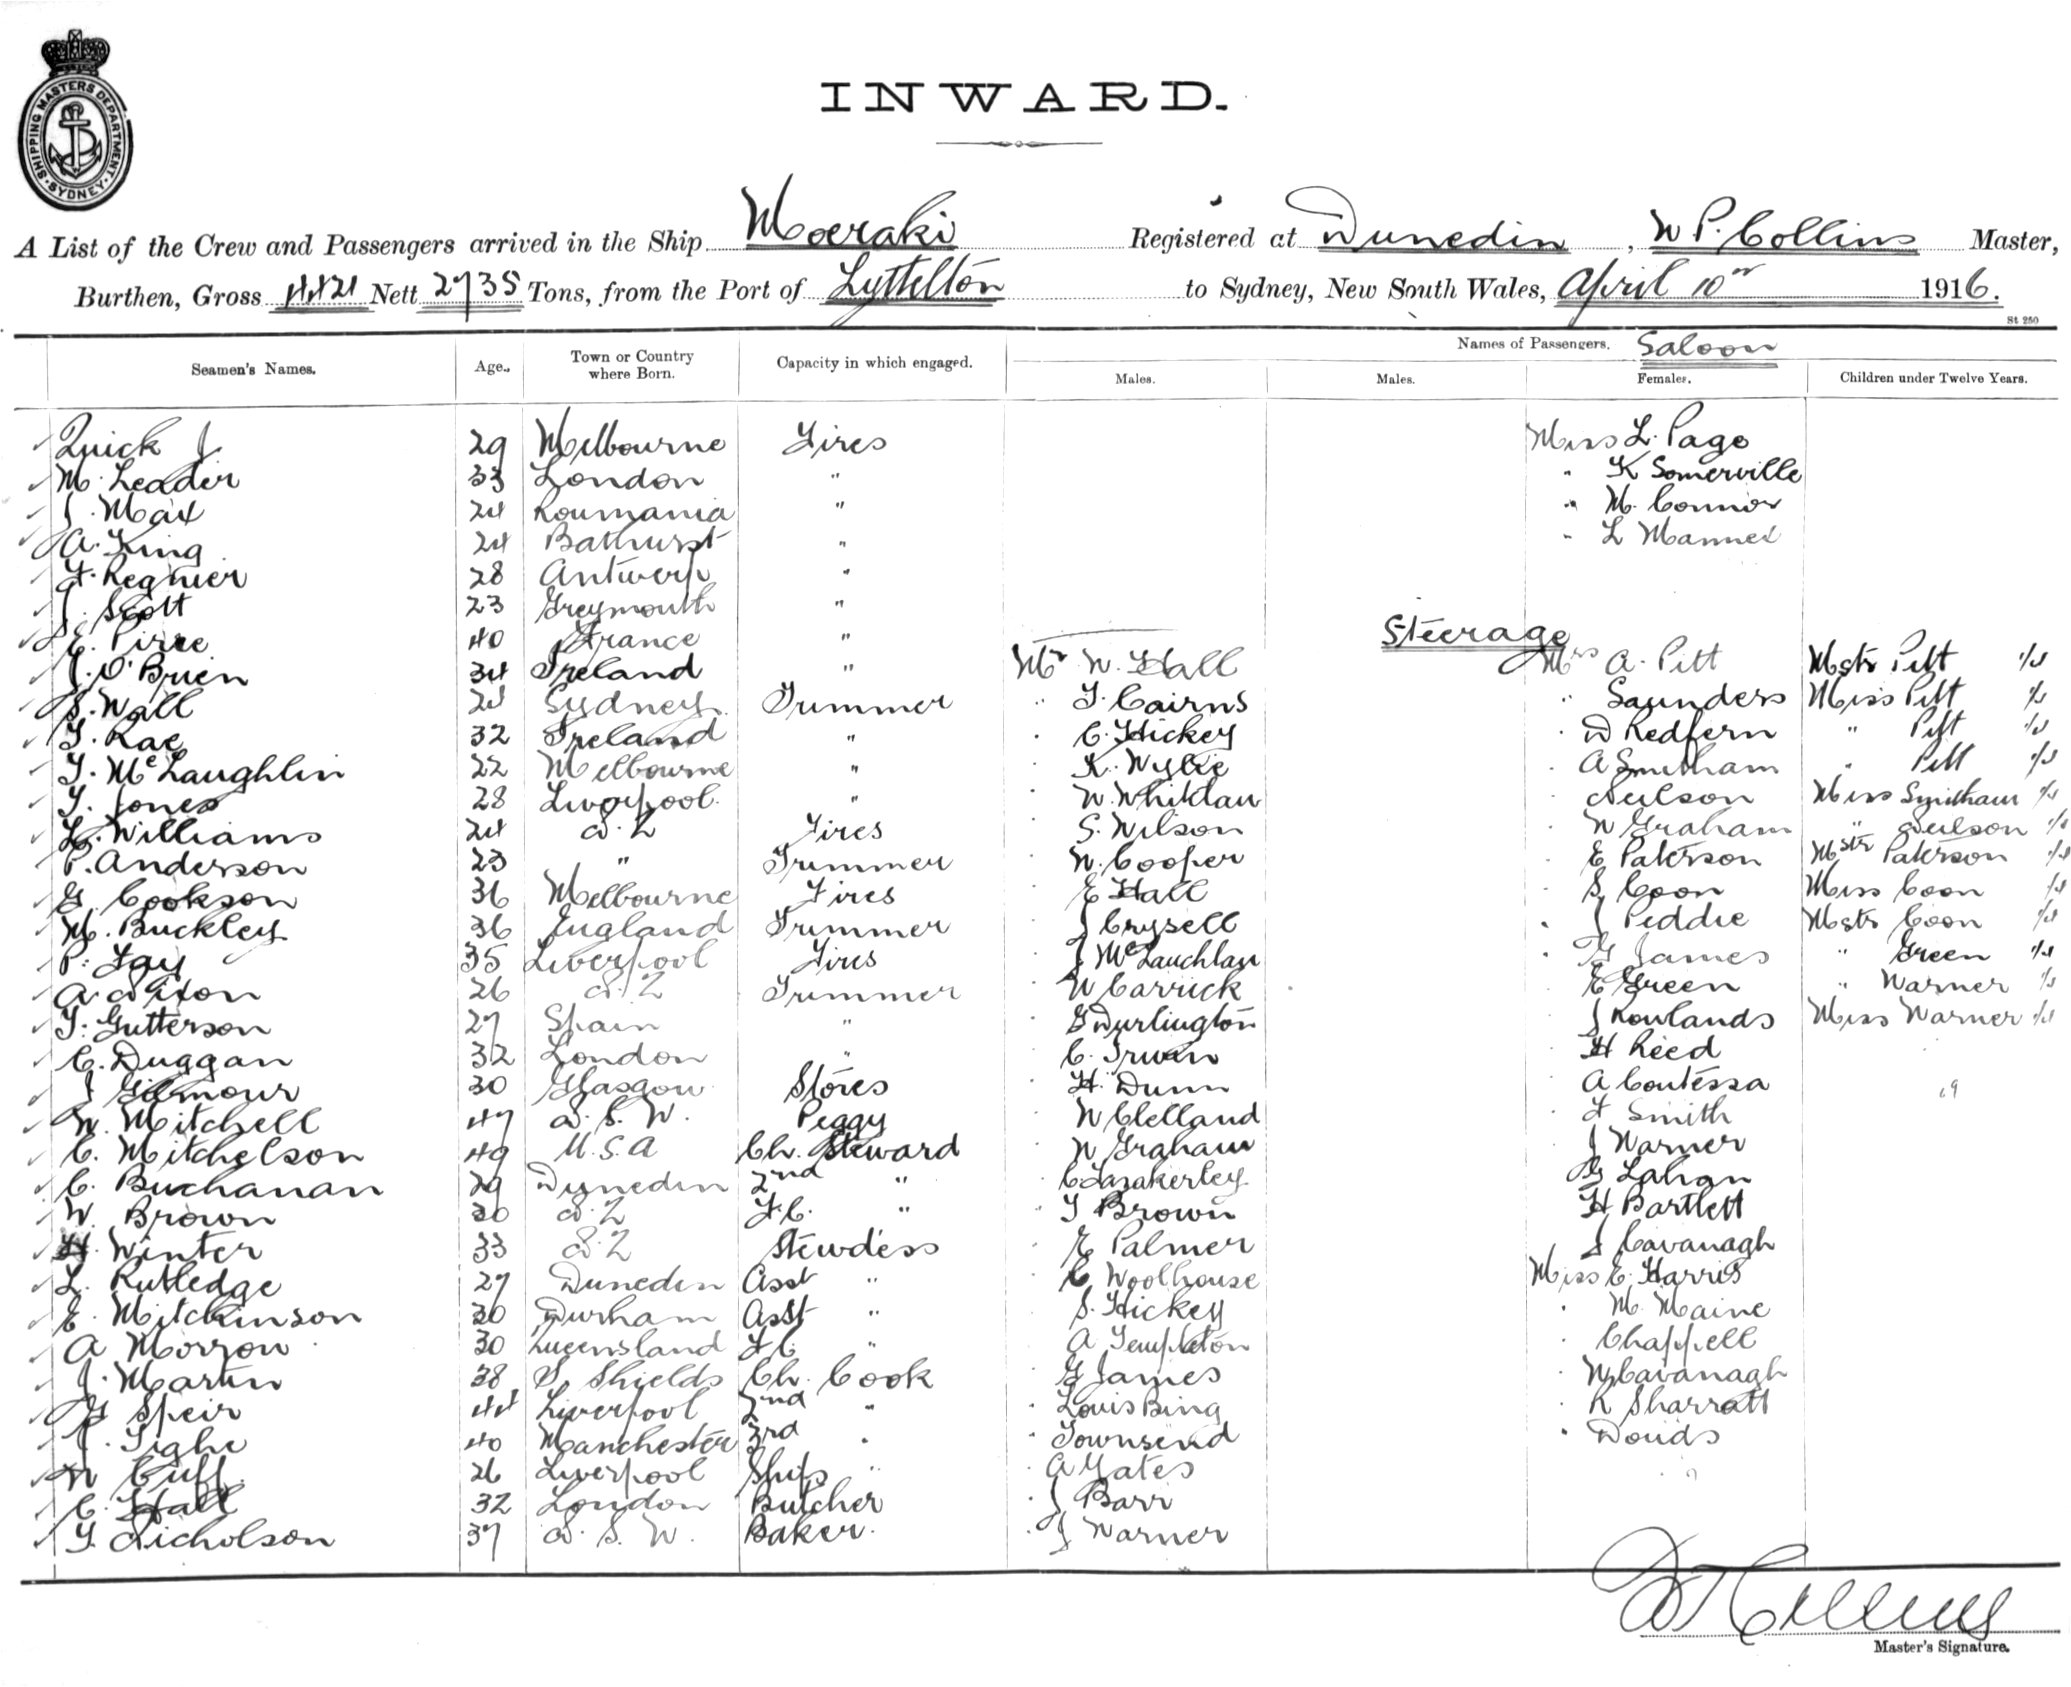 SHIPPING MASTERS DEPARTMENT. SYDNEY.
INWARD.
A List of the Crew and Passengers arrived in the Ship Moeraki Registered at Dunedin, W P. Collins Master,
Burthen, Gross 4421 Nett 2735 Tons, from the Port of Lyttelton to Sydney, New South Wales, April 10 1916.
St 250
Names of Passengers. Saloon
Seamen's Names. Age. Town or Country where Born. Capacity in which engaged. Males. Males. Females. Children under Twelve Years.
Quick J. 29 Melbourne Fires Miss L. Page
M. Leader 33 London " " K Somerville
J. Max 24 Roumania " " M. Connor
A. King 24 Bathurst " " L
F. Regnier 28 Antwerp "
J. Scott 23 Greymouth "
Steerage
E. Pirre 40 France " Mr W. Hall Mrs A. Pitt Mstr Pitt
J. O'Brien 34 Ireland " " T. Cairns " Saunders Miss Pitt
S. Wall 24 Sydney Trimmer " C. Hickey " D Redfern " Pitt
T. Rae 32 Ireland " " K. Wylie " A Smitham " Pitt
T. McLaughlin 22 Melbourne " " W. " Neilson Miss Smitham
T. Jones 28 Liverpool " " S. Wilson " W Graham " Neilson
L. Williams 24 N. Z Fires " W. Cooper " E Paterson Mstr Paterson
P. Anderson 23 " Trimmer " E Hall " S. Coon Miss Coon
G. Cookson 36 Melbourne Fires " J Crysell " J Peddie Mstr Coon
M. Buckley 36 England Trimmer " J McLauchlan " G James " Green
P. Fay 35 Liverpool Fires " W Carrick " E Green " Warner
A. Nixon 26 N. Z Trimmer " G Durlington " J Rowlands Miss Warner
T. Gutterson 27 Spain " " C. Irwin " H Reed
C. Duggan 32 London " " H. Dunn " A Contessa
J Gilmour 30 Glasgow Stores " W Clelland " F Smith
W. Mitchell 47 N. S. W. Peggy " W Graham " J Warner
C. Mitchelson 49 U. S. A Ch. Steward " C Lazakerley " G Lahan
C. Buchanan 29 Dunedin 2nd " " T Brown " H Bartlett
W. Brown 30 N. Z F. C. " " E Palmer " J Cavanagh
H. Winter 33 N. Z Stewdess " C Woolhouse Miss E. Harris
L. Rutledge 27 Dunedin Asst " " S. Hickey " M. Maine
E. Mitchinson 30 Durham Asst " " A Templeton " Chappell
A Morrow 30 Queensland F C. " " G James " W Cavanagh
J. Martin 38 S. Shields Ch. Cook " Louis Bing " K Sharratt
G Speir 44 Liverpool 2nd " " Townsend " Douds
J. Tighe 40 Manchester 3rd " " A Yates
W Cuff. 26 Liverpool Ships " " J Barr
C. Hall 32 London Butcher " J Warner
T. Nicholson 37 N. S. W. Baker.
W P Collins
Master's Signature.